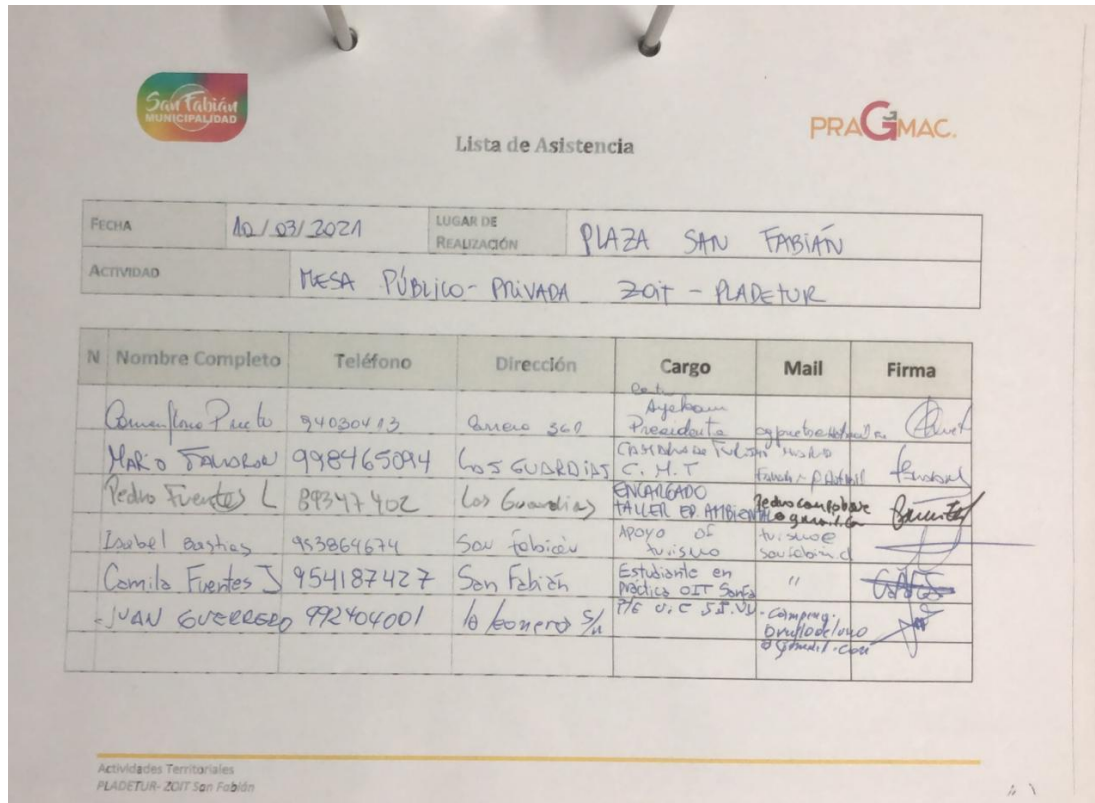 San Fabián
MUNICIPALIDAD
PRAGMAC.
Lista de Asistencia
FECHA 10/03/2021 LUGAR DE REALIZACIÓN PLAZA SAN FABIÁN
ACTIVIDAD MESA PÚBLICO-PRIVADA ZOIT - PLADETUR
N Nombre Completo Teléfono Dirección Cargo Mail Firma
94030413 360 Presidenta
MARIO 998465094 LOS GUARDIAS C. M. T
Pedro Fuentes L 89347402 Los Guardias ENCARGADO TALLER ED AMBIENTAL
Isabel Bastias 953864674 San Fabián APOYO OF turismo turismo@sanfabian.cl
Camila Fuentes J 954187427 San Fabián Estudiante en Práctica OIT "
JUAN GUERRERO 992404001 s/n
Actividades Territoriales
PLADETUR- ZOIT San Fabián